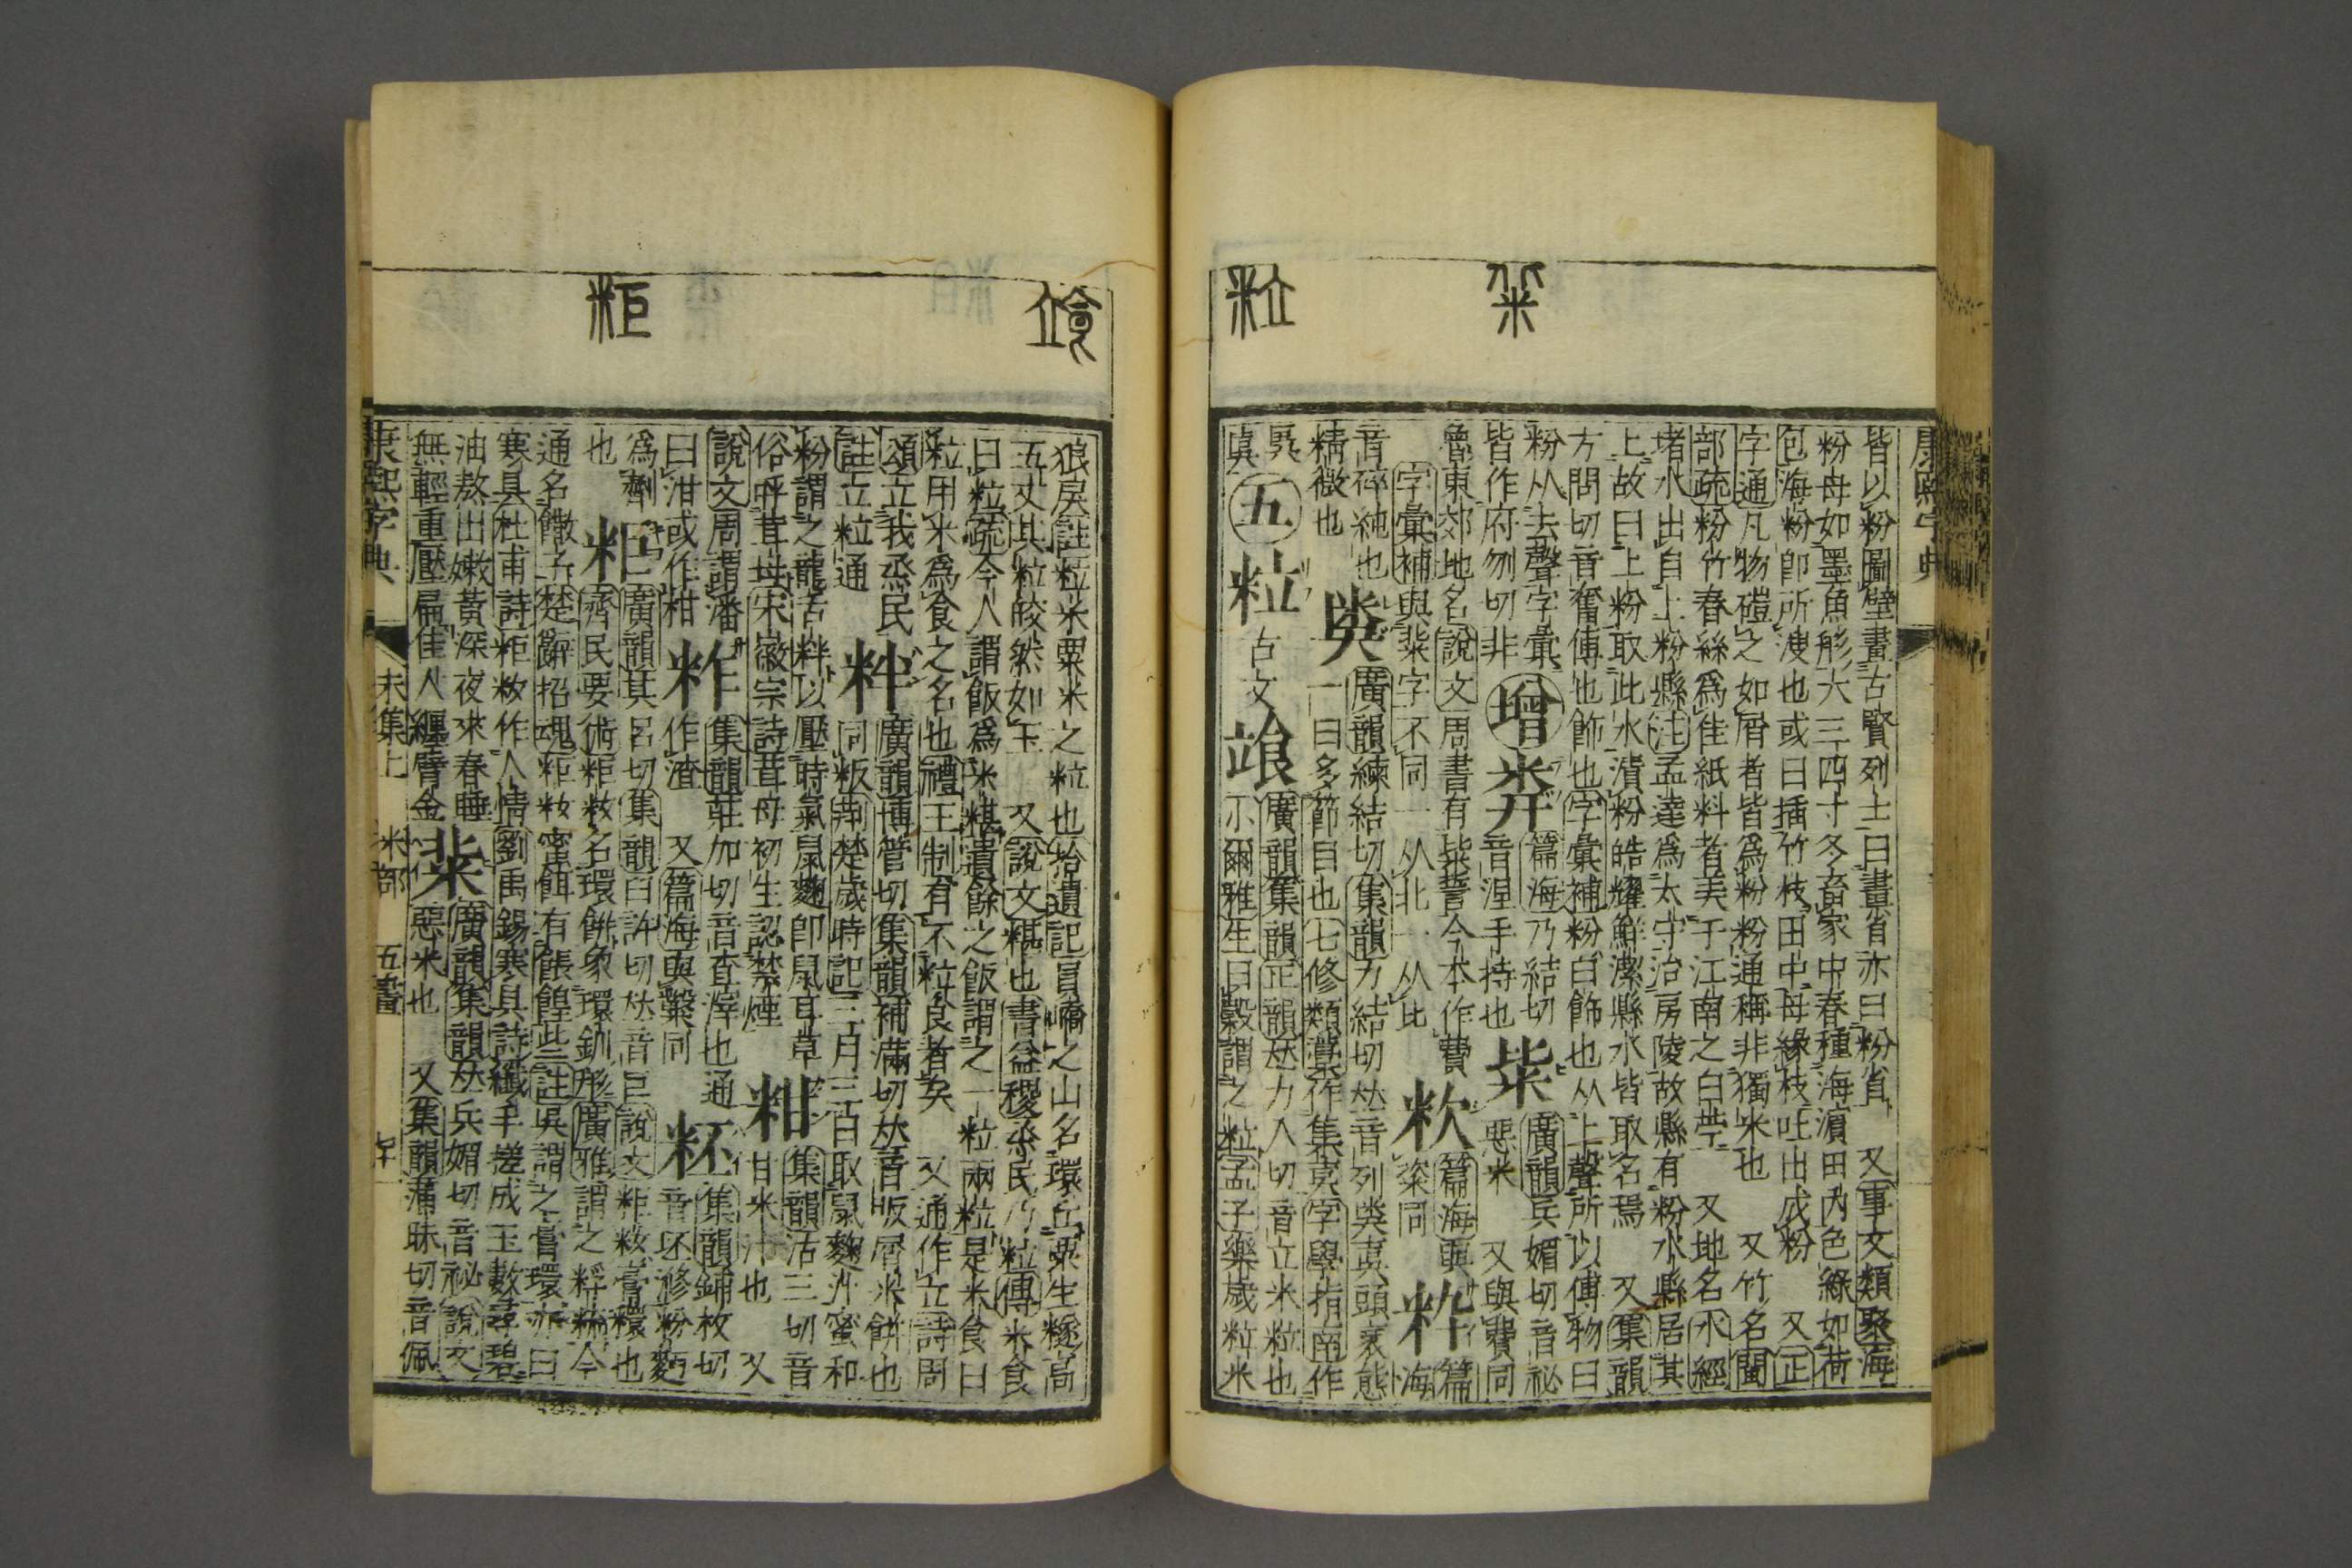 康熙字典
粊
粒
皆以粉圖壁畫古賢列士曰畫省亦曰粉省　又事文類聚海
粉母如墨魚形大三四寸冬畜家中春種海濱田內色綠如荷
包海粉卽所溲也或曰插竹枝田中母緣枝吐出成粉　又正
字通凡物磑之如屑者皆爲粉粉通稱非獨米也　又竹名閩
部疏粉竹春絲爲佳紙料者美于江南之白苧　又地名水經
堵水出自上粉縣注孟達爲太守治房陵故縣有粉水縣居其
上故曰上粉取此水漬粉皓耀鮮潔縣水皆取名焉　又集韻
方問切音奮傅也飾也字彙補粉白飾也从上聲所以傅物曰
粉从去聲字彙
皆作府刎切非
增
篇海乃結切
音涅手持也
粊
廣韻兵媚切音祕
惡米　又與費同
魯東郊地名說文周書有粊誓今本作費
字彙補與棐字不同一从北一从比
篇海與
粢同
粋
篇
海
音碎純也
精微也
廣韻練結切集韻力結切𠀤音列奊𡙇頭衺態
一曰多節目也七修類藁作集𡙇字學指南作
五
粒
古文
廣韻集韻正韻𠀤力入切音立米粒也
小爾雅生曰穀謂之粒孟子樂歲粒米
粔
狼戾註粒米粟米之粒也拾遺記員嶠之山名環丘粟生穟高
五丈其粒皎然如玉　又說文糂也書益稷烝民乃粒傳米食
曰粒疏今人謂飯爲米糂遺餘之飯謂之一粒兩粒是米食曰
粒用米爲食之名也禮王制有不粒食者矣　又通作立詩周
頌立我烝民
註立粒通
䉽
廣韻博管切集韻補滿切𠀤音昄屑米餅也
同粄荊楚歲時記三月三日取鼠麴汁蜜和
粉謂之龍舌䉽以壓時氣鼠麴卽鼠耳草
俗呼茸母宋徽宗詩茸母初生認禁煙
粓
集韻沽三切音
甘米汁也　又
說文周謂潘
曰泔或作柑
集韻莊加切音查滓也通
作渣　又篇海與糳同
集韻鋪枚切
音坯滫粉麪
爲劑
也
粔
廣韻其呂切集韻臼許切𠀤音巨說文粔籹膏環也
齊民要術粔籹名環餅象環釧形廣雅謂之粰䊩今
通名饊子楚辭招魂粔籹蜜餌有餦餭些註吳謂之膏環亦曰
寒具杜甫詩粔籹作人情劉禹錫寒具詩纖手搓成玉數尋碧
油熬出嫩黃深夜來春睡
無輕重壓扁佳人纏臂金
粊
廣韻集韻𠀤兵媚切音祕說文
惡米也　又集韻蒲昧切音佩
康熙字典　未集上　米部　五畫